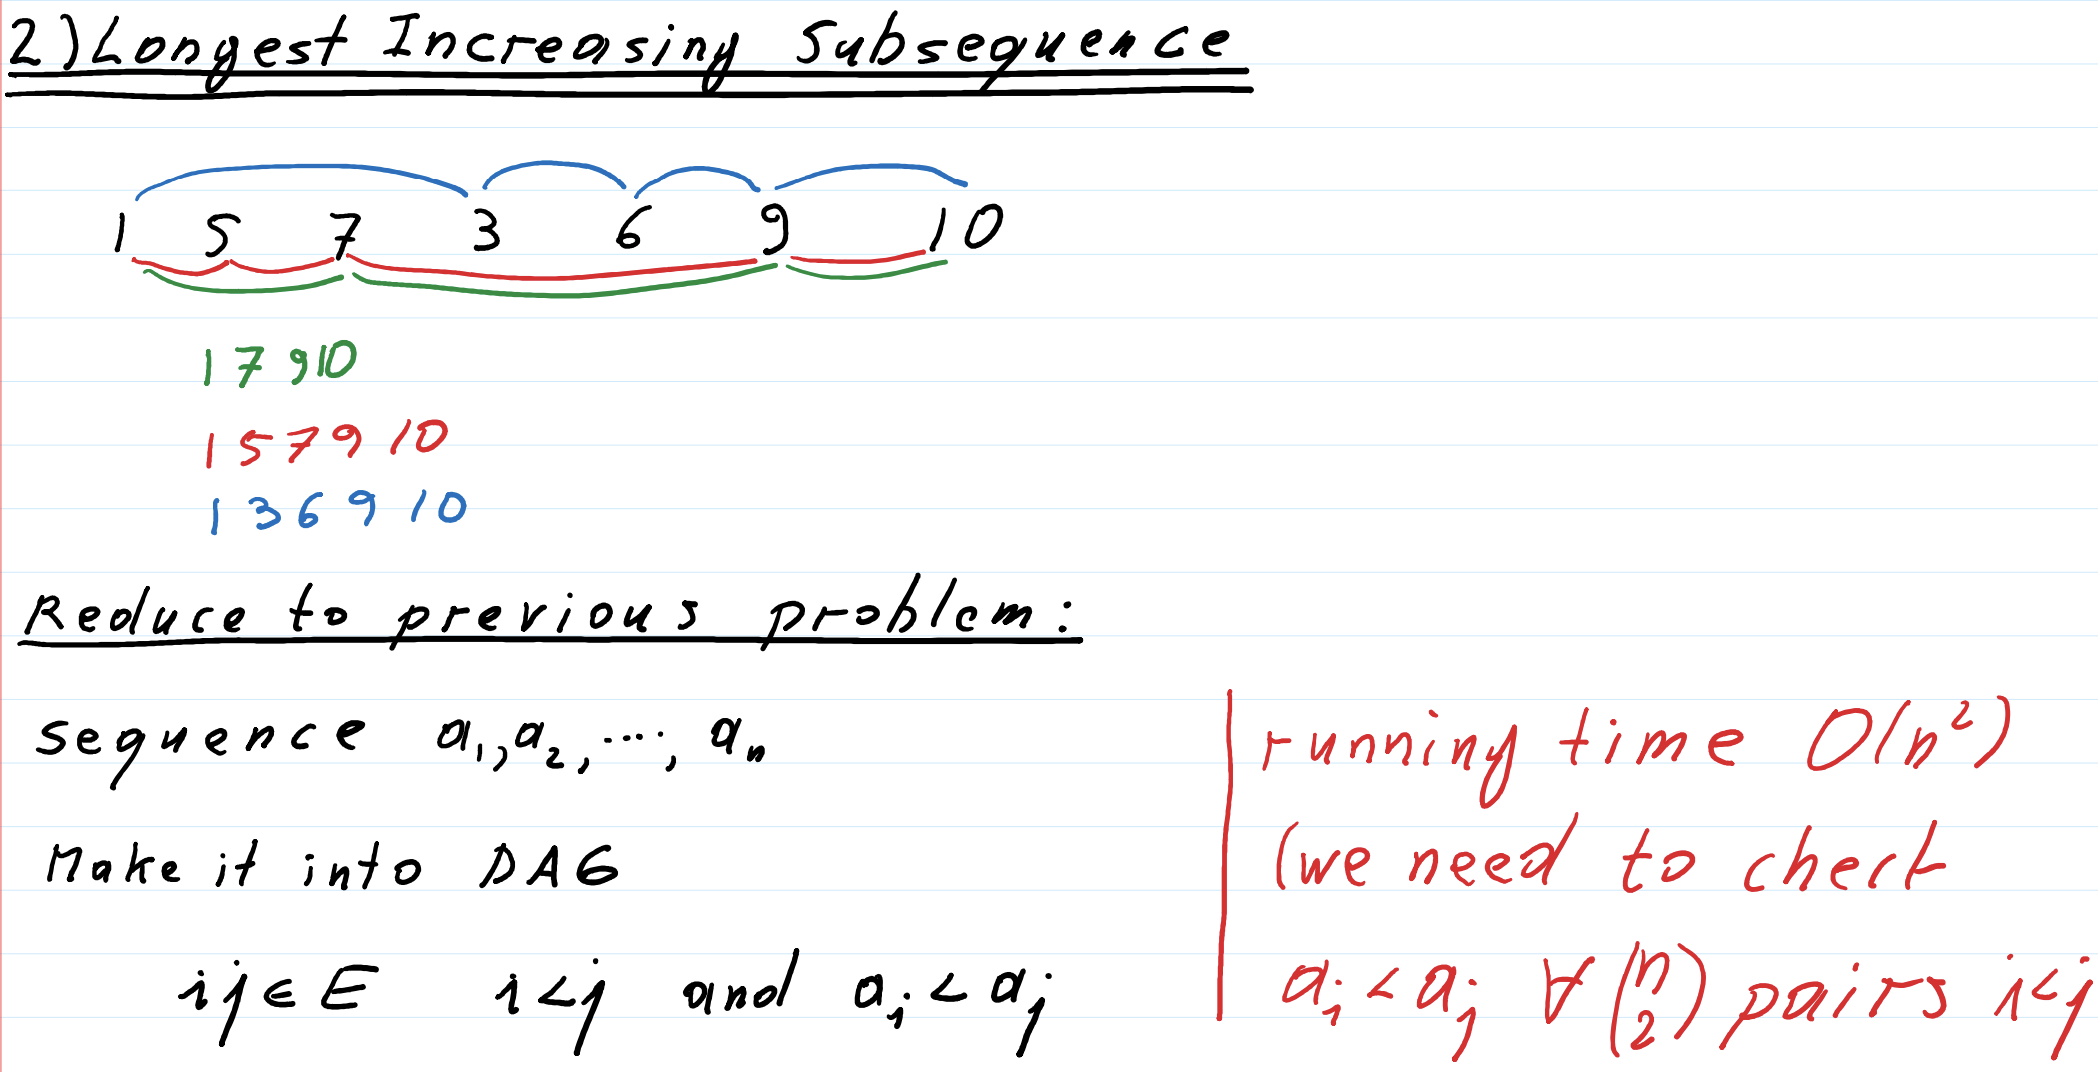 2) Longest Increasing Subsequence
1 5 7 3 6 9 10
1 7 9 10
1 5 7 9 10
1 3 6 9 10
Reduce to previous problem:
sequence a₁, a₂, ..., aₙ
Make it into DAG
ij ∈ E i<j and aᵢ < aⱼ
running time O(n²)
(we need to check
aᵢ < aⱼ ∀ (n 2) pairs i<j